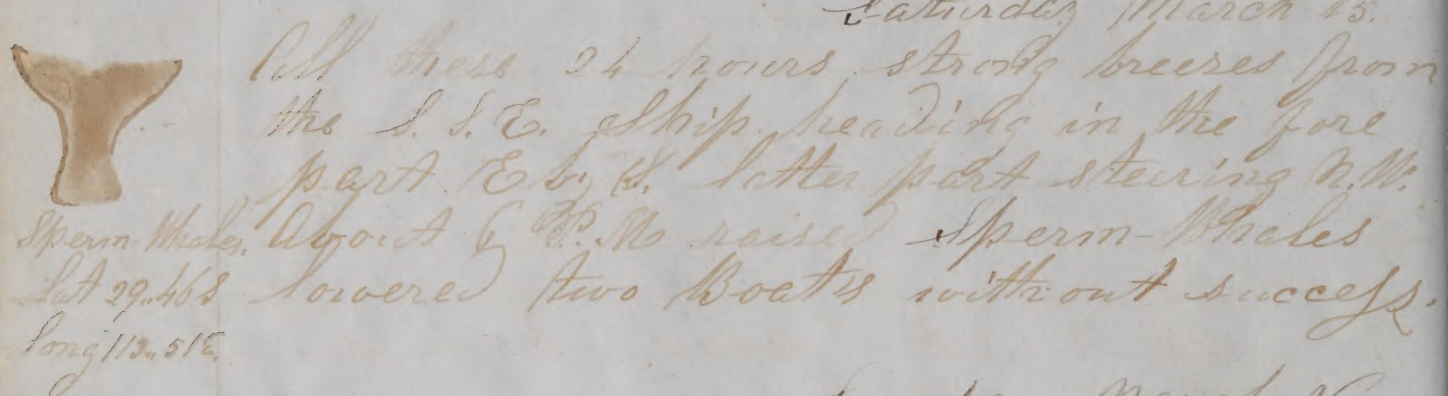 Saturday March 15.
All these 24 hours strong breezes from
the S. S. E. Ship heading in the fore
part E by S. latter part steering N. W.
About 6 P. M raised Sperm-Whales
lowered two Boats without success.
Sperm-Whales.
Lat 29..46 S
Long 113..51 E.